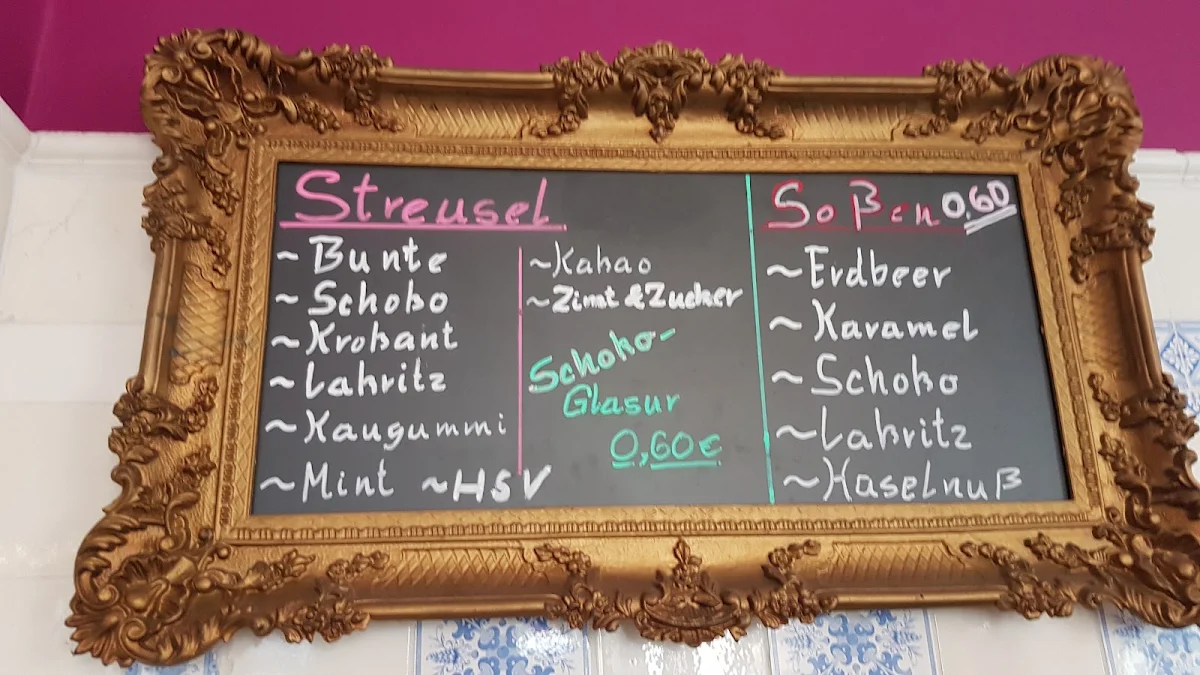 Streusel
~Bunte
~Schoko
~Krokant
~Lakritz
~Kaugummi
~Mint ~HSV
~Kakao
~Zimt & Zucker
Schoko-
Glasur
0,60€
Soßen 0,60
~Erdbeer
~Karamel
~Schoko
~Lakritz
~Haselnuß